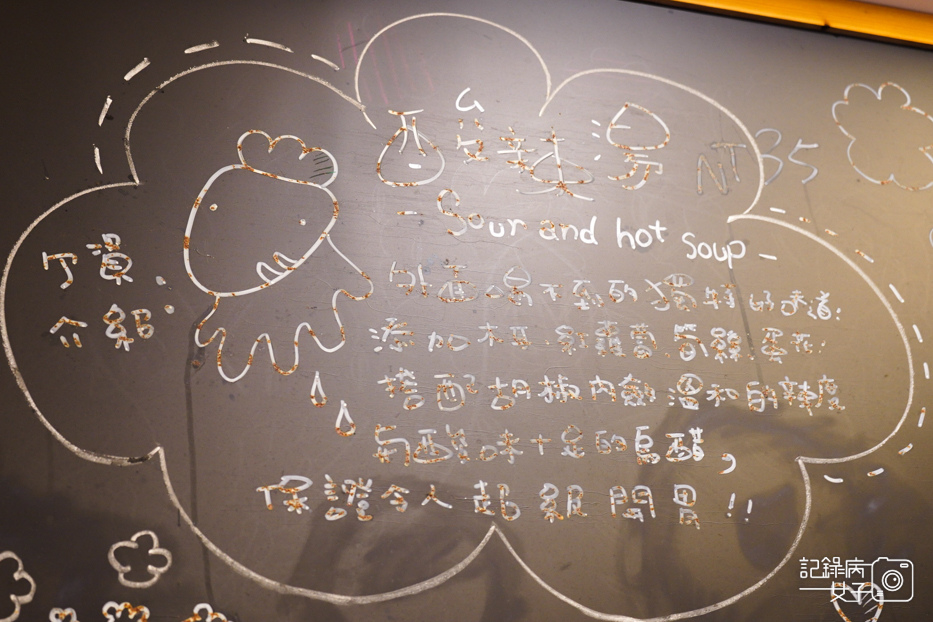 酸辣湯 NT35
- Sour and hot soup -
丁員
介紹
別處喝不到的獨特的味道:
添加木耳 紅蘿蔔 筍絲 蛋花.
搭配胡椒 溫和的辣度
與酸味十足的烏醋,
保證令人超級開胃!!
記錄病
女子